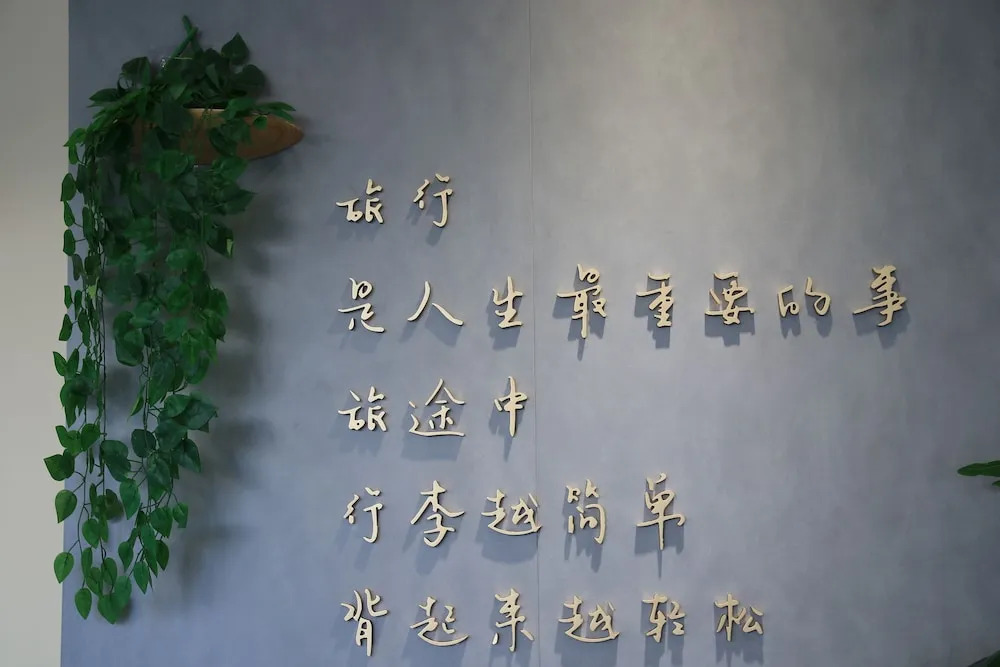 旅行
是人生最重要的事
旅途中
行李越简单
背起来越轻松